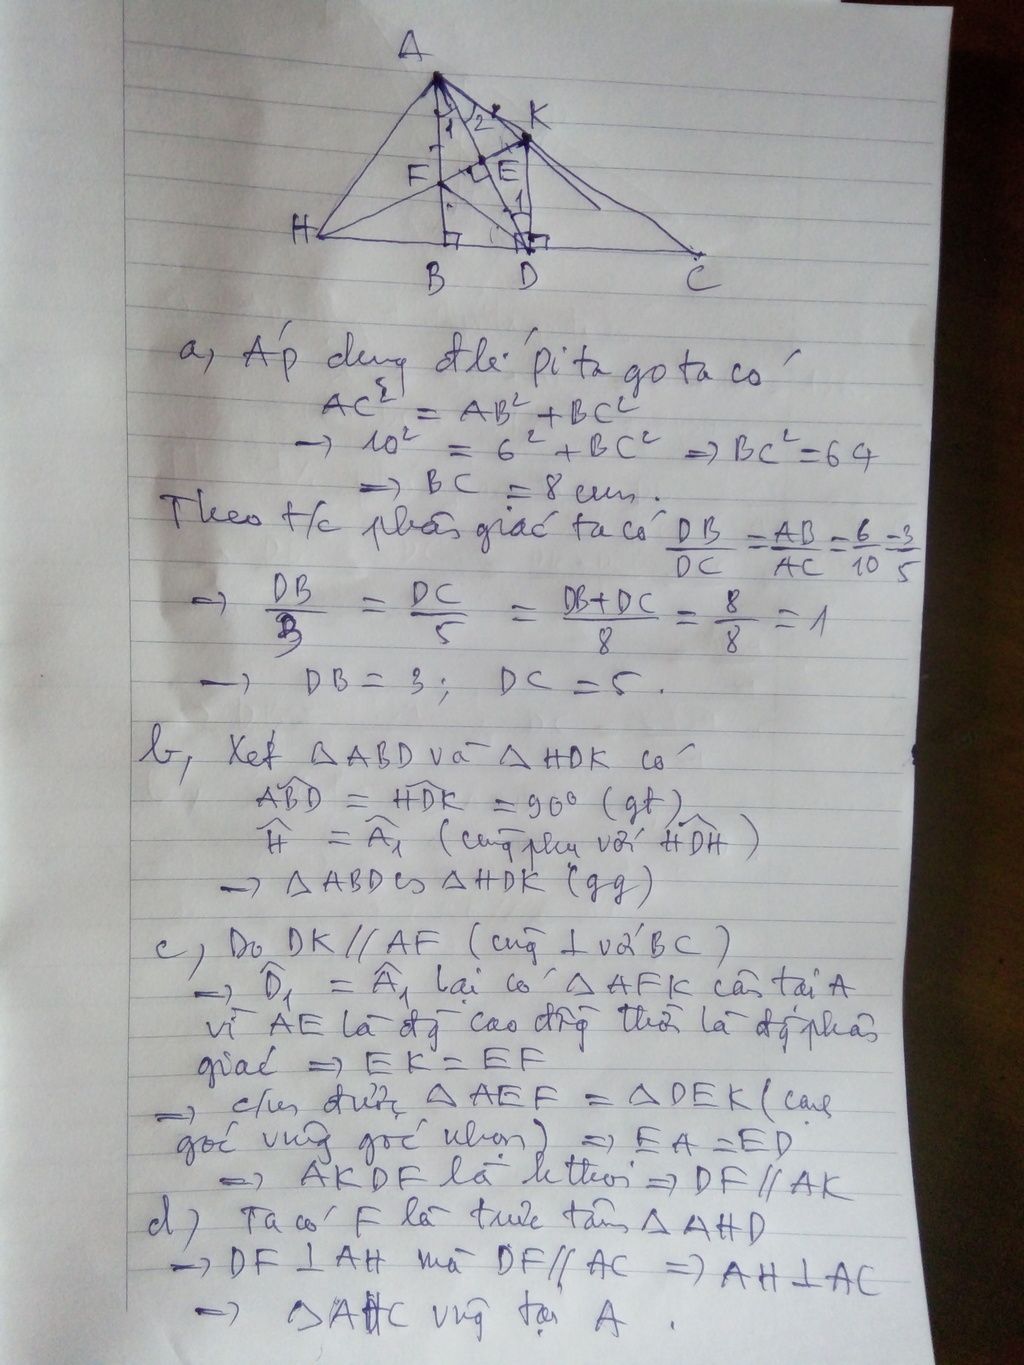 A
K
1 2
F
E
1
H
B D C
a, Áp dụng đ lí pi ta go ta có
AC² = AB² + BC²
→ 10² = 6² + BC² => BC² = 64
=> BC = 8 cm.
Theo t/c phân giác ta có DB/DC = AB/AC = 6/10 = 3/5
→ DB/3 = DC/5 = DB+DC/8 = 8/8 = 1
→ DB = 3; DC = 5.
b, Xét △ABD và △HDK có
ABD̂ = HDK̂ = 90° (gt)
Ĥ = Â₁ (cùng phụ với HDĤ)
→ △ABD ∽ △HDK (gg)
c, Do DK // AF (cùng ⊥ với BC)
→ D̂₁ = Â₁ lại có △AFK cân tại A
vì AE là đg cao đồng thời là đg phân
giác => EK = EF
=> c/m được △AEF = △DEK (cạnh
góc vuông góc nhọn) => EA = ED
→ AKDF là h thoi => DF // AK
d) Ta có F là trực tâm △AHD
→ DF ⊥ AH mà DF // AC => AH ⊥ AC
→ △AHC vuông tại A.